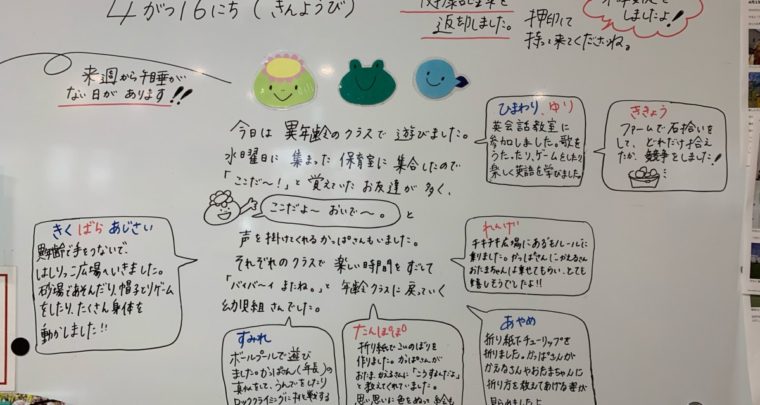 4がつ16にち(きんようび)
返却しました。
押印して
持って来てくださいね。
しましたよ!
来週から午睡が
ない日があります!!
今日は異年齢のクラスで遊びました。
水曜日に集まった保育室に集合したので
「ここだ〜!」と覚えていたお友達が多く、
ここだよ〜おいで〜。と
声を掛けてくれるかっぱさんもいました。
それぞれのクラスで楽しい時間をすごして
「バイバーイまたね。」と年齢クラスに戻っていく
幼児組さんでした。
ひまわり、ゆり
英会話教室に
参加しました。歌を
うたったり、ゲームをしたり
楽しく英語を学びました。
ききょう
ファームで石拾いを
して、どれだけ拾え
たか、競争をしました!
きく ばら あじさい
異年齢で手をつないで、
はしりっこ広場へいきました。
砂場であそんだり、帽子とりゲーム
をしたり、たくさん身体を
動かしました!!
れんげ
チキチキ広場にあるモノレールに
乗りました。かっぱさんにかえるさん
おたまちゃんは乗せてもらい、とても
嬉しそうでしたよ!!
すみれ
ボールプールで遊び
ました。かっぱさん(年長)の
真似をして、うんていをしたり
ロッククライミングに
たんぽぽ
折り紙でこいのぼりを
作りました。かっぱさんが
おたま、かえるさんに「こうするんだよ」
と教えてくれていました。
思い思いに色をぬって
あやめ
折り紙でチューリップを
折りました。かっぱさんが
かえるさんやおたまちゃんに
折り方を教えてあげる姿が
見られましたよ